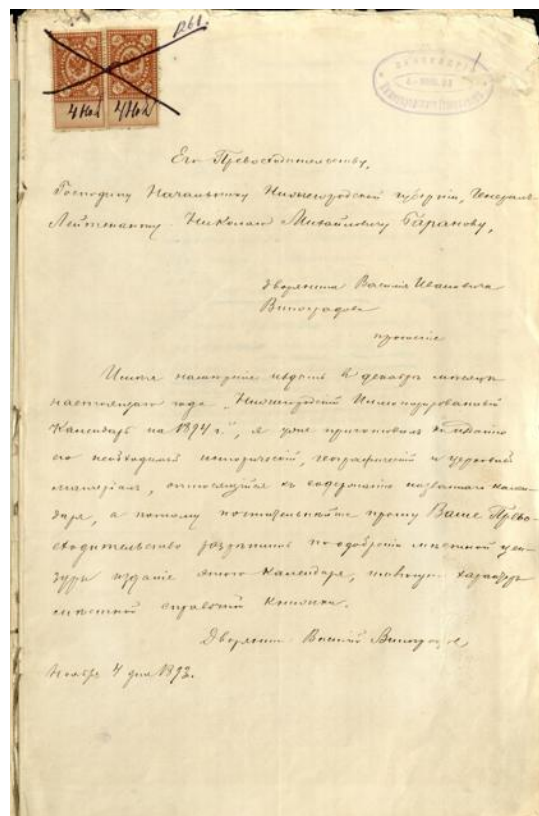 1261.
4 Ноя 4 Ноя
Его Превосходительству,
Господину Начальнику Нижегородской губернии, Генерал-
Лейтенанту Николаю Михайловичу Баранову,
Дворянина Василия Ивановича
Виноградова
прошение
Имея намерение издать в декабре месяце
настоящаго года „Нижегородский Иллюстрированный
Календарь на 1894 г.", я уже приготовил к изданию
его необходимый исторический, географический и церковный
материал, относящийся къ содержанию названнаго кален-
даря, а потому почтительнейше прошу Ваше Прево-
сходительство разрешить по одобрении местной цен-
зуры издание этого Календаря, имеющаго характер
местной справочной книжки.
Дворянин Василий Виноградов,
Ноября 4 дня 1893.